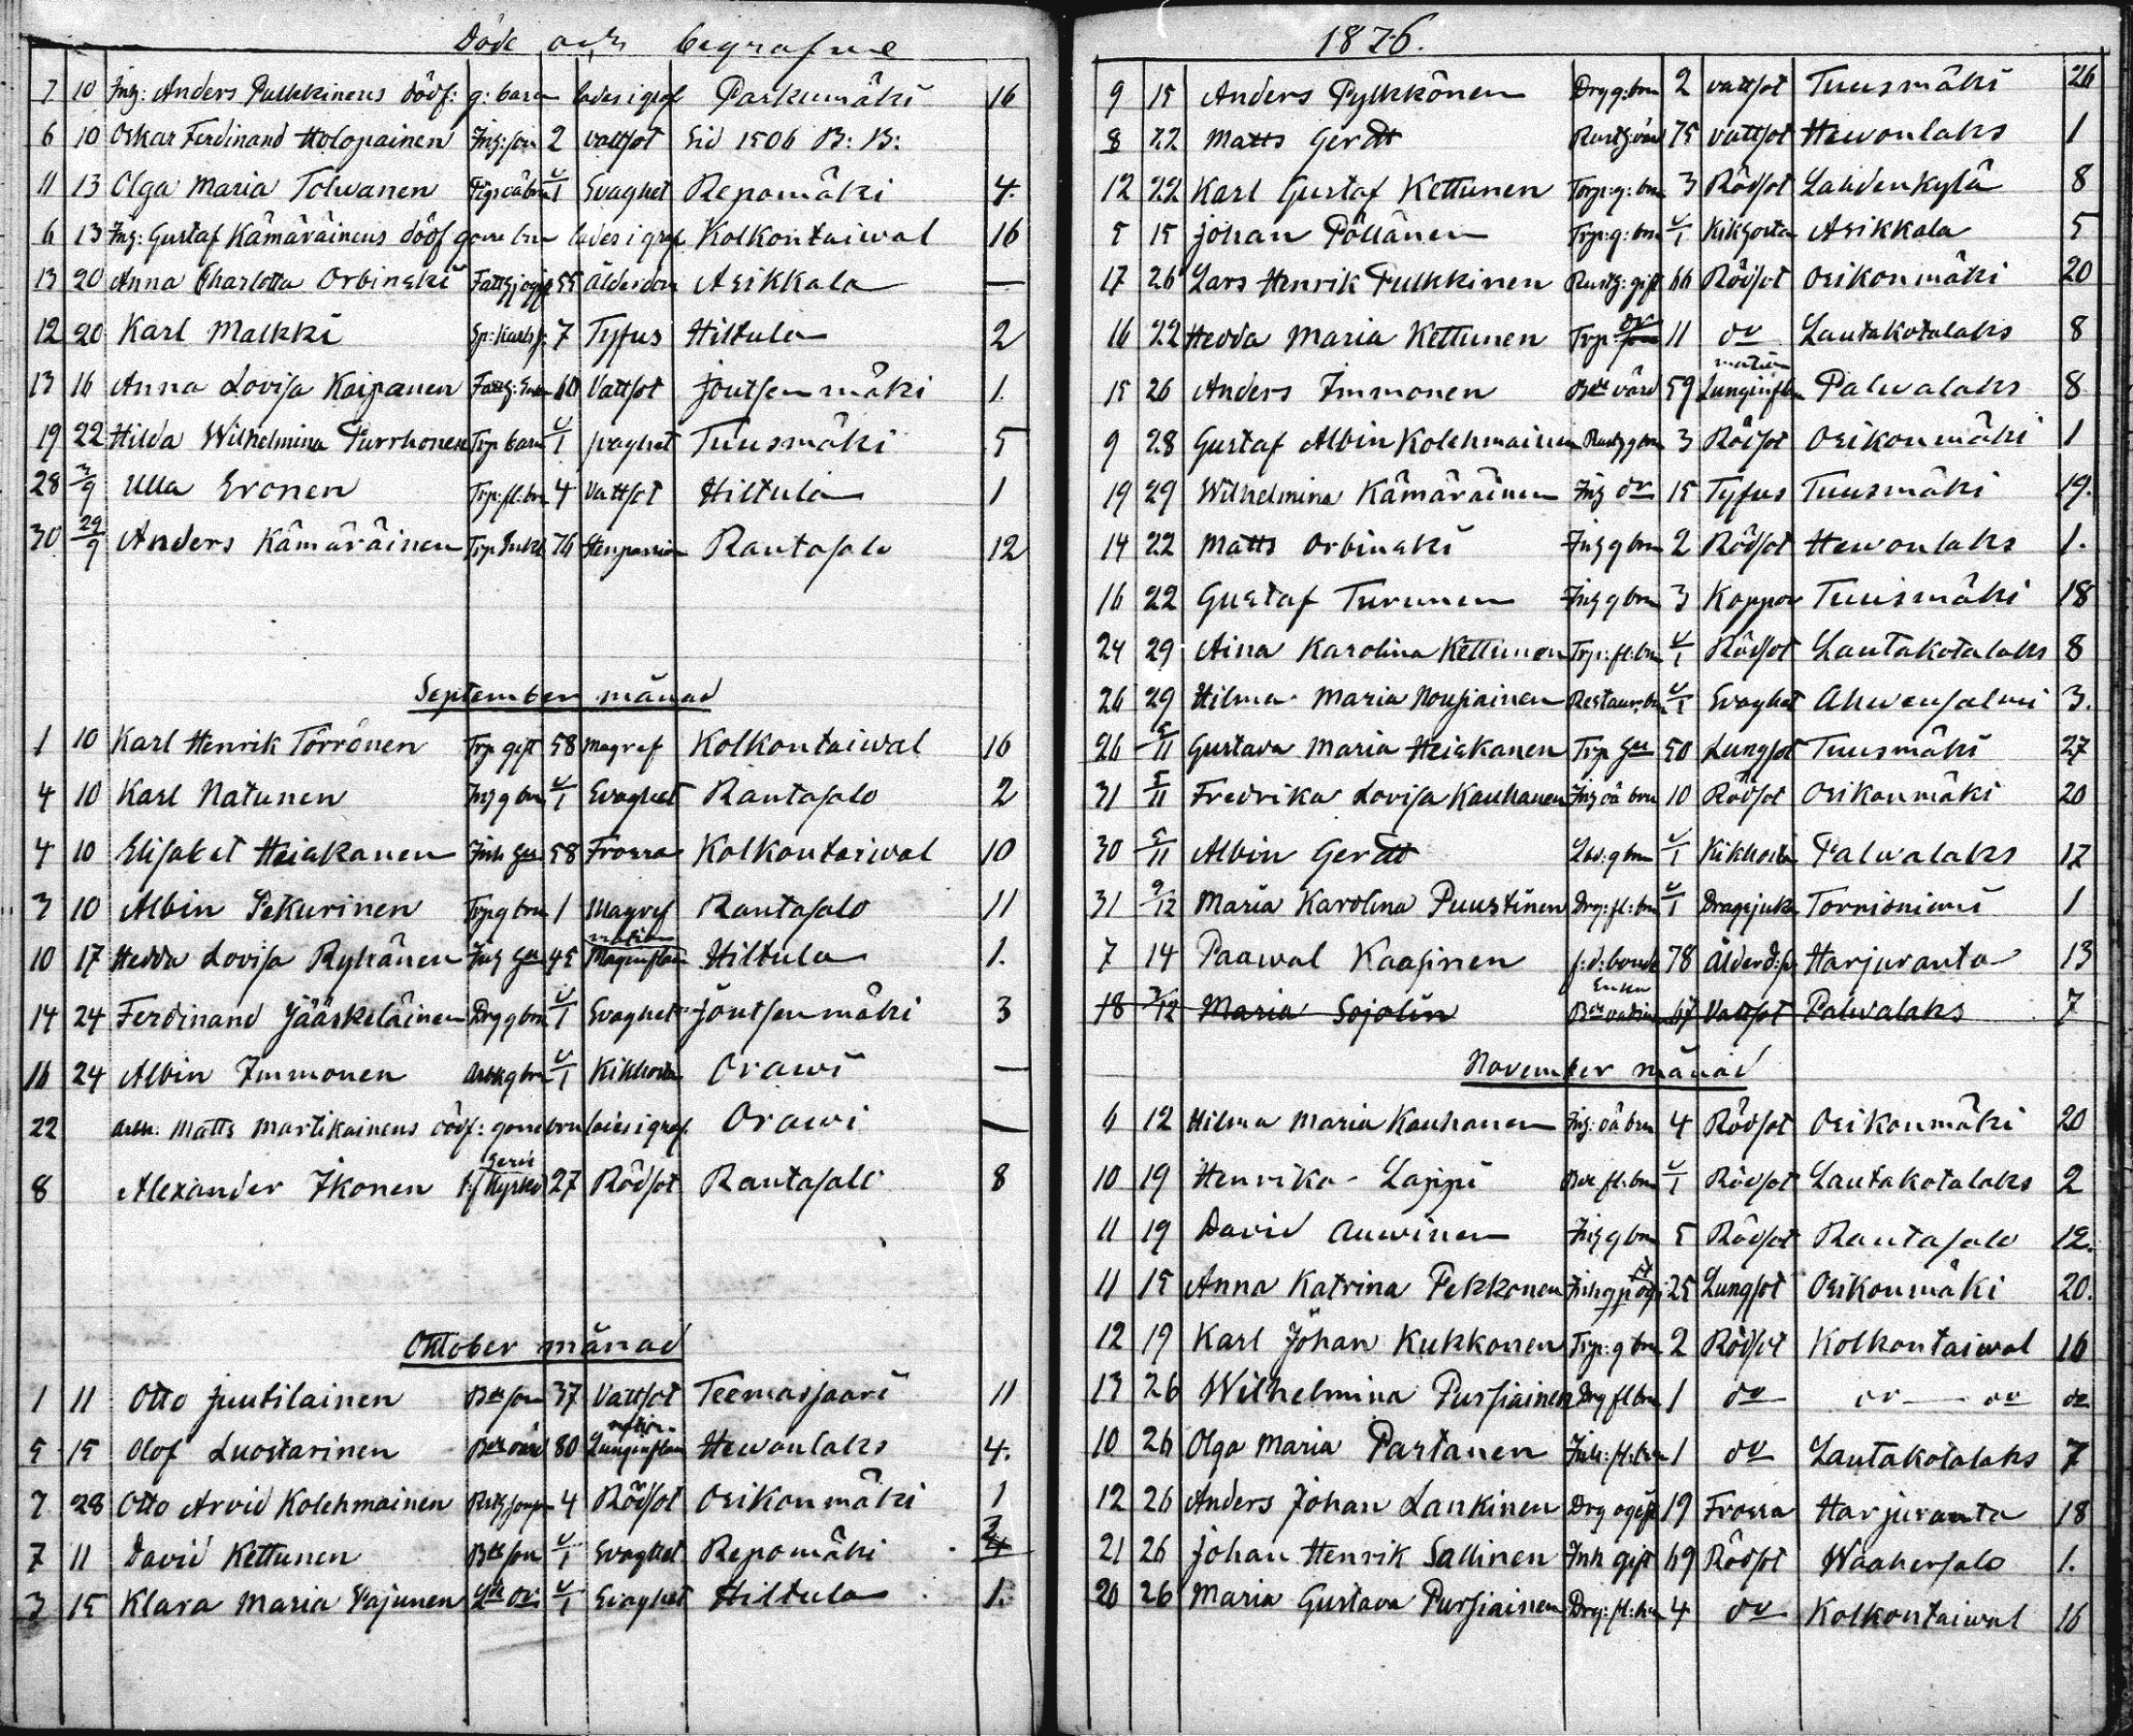 Döde och begrafne
7 10 Inh: Anders Pulkkinens dödf: g: barn lades i graf Parkumäki 16
6 10 Oskar Ferdinand Holopainen Inh: son 2 Vattsot Sid 1506 B: B:
11 13 Olga Maria Tolvanen u/1 Svaghet Repomäki 4.
6 13 Inh: Gustaf Kämäräinens dödf gosse brn lades i graf Kolkontaiwal 16
13 20 Anna Charlotta Orbinski 55 Ålderdom Asikkala —
12 20 Karl Malkki 7 Tyfus Hiltula 2
13 16 Anna Lovisa Kaipanen 60 Vattsot Joutsenmäki 1.
19 22 Hilda Wilhelmina Turrhonen Trp barn u/1 svaghet Tuusmäki 5
28 3/9 Ulla Eronen Trp: fl: brn 4 Vattsot Hiltula 1
30 29/9 Anders Kämäräinen Trp Enkl 76 Stenpassion Rantasalo 12
September månad
1 10 Karl Henrik Törrönen Trp gift 58 Magref Kolkontaiwal 16
4 10 Karl Natunen Inh g brn u/1 Svaghet Rantasalo 2
4 10 Elisabet Heiskanen Inh 58 Frossa Kolkontaiwal 10
3 10 Albin Pekurinen Trp g brn 1 Magref Rantasalo 11
10 17 Hedda Lovisa Ryhänen Inh 45 Hiltula 1.
14 24 Ferdinand Jääskeläinen Drg g brn u/1 Svaghet Joutsenmäki 3
16 24 Albin Immonen g brn u/1 Kikhosta Orawi —
22 Matts Martikainens dödf: gosse brn lades i graf. Orawi —
8 Alexander Ikonen 27 Rödsot Rantasalo 8
Oktober månad
1 11 Otto Juutilainen Bde son 37 Vattsot Teemassaari 11
5 15 Olof Luostarinen Bde 80 Lunginflam mation Hewonlaks 4.
7 28 Otto Arvid Kolehmainen 4 Rödsot Osikonmäki 1
7 11 David Kettunen Bde son u/1 Svaghet Repomäki 3
3 15 Klara Maria Pajunen u/1 Svaghet Hiltula 1.
1876.
9 15 Anders Pylkkönen Drg g: brn 2 Vattsot Tuusmäki 26
8 22 Matts Gerdt 75 Vattsot Hewonlaks 1
12 22 Karl Gustaf Kettunen Trp: g: brn 3 Rödsot Lahdenkylä 8
5 15 Johan Pöllänen Trp: g: brn u/1 Kikhosta Asikkala 5
17 26 Lars Henrik Pulkkinen Rustg: gift 66 Rödsot Osikonmäki 20
16 22 Hedda Maria Kettunen Trp dr 11 do Lautakotalaks 8
15 26 Anders Immonen Bde värd 59 Lunginflam mation Palwalaks 8
9 28 Gustaf Albin Kolehmainen Rustg g brn 3 Rödsot Osikonmäki 1
19 29 Wilhelmina Kämäräinen Inh dr 15 Tyfus Tuusmäki 19.
14 22 Matts Orbinski Inh g brn 2 Rödsot Hewonlaks 1.
16 22 Gustaf Turunen Inh g brn 3 Koppor Tuusmäki 18
24 29 Aina Karolina Kettunen Trp: fl: brn u/1 Rödsot Lautakotalaks 8
26 29 Hilma Maria Nousiainen u/1 Svaghet Ahwensalmi 3.
26 5/11 Gustava Maria Heiskanen Trp 50 Lungsot Tuusmäki 27
31 5/11 Fredrika Lovisa Kauhanen Inh oä brn 10 Rödsot Osikonmäki 20
30 5/11 Albin Gerdt g brn u/1 Kikhosta Palwalaks 17
31 9/12 Maria Karolina Puustinen Drg: fl: brn u/1 Dragsjuka Tornioniemi 1
7 14 Paawal Kaasinen f: d: bonde 78 Ålderd: Harjuranta 13
18 3/12 Maria Sojolin Enka 67 Vattsot Palwalaks 7
November månad
6 12 Hilma Maria Kauhanen Inh: oä brn 4 Rödsot Osikonmäki 20
10 19 Henrika Lappi Bde fl: brn u/1 Rödsot Lautakotalaks 2
11 19 David Auwinen Inh g brn 5 Rödsot Rantasalo 12.
11 15 Anna Katrina Pekkonen 25 Lungsot Osikonmäki 20.
12 19 Karl Johan Kukkonen Trp: g brn 2 Rödsot Kolkontaiwal 16
13 26 Wilhelmina Pursiainen Drg fl brn 1 do do — do do
10 26 Olga Maria Partanen Inh: fl: brn 1 do Lautakotalaks 7
12 26 Anders Johan Lankinen Drg ogift 19 Frossa Harjuranta 18
21 26 Johan Henrik Sallinen Inh gift 69 Rödsot Waahersalo 1.
20 26 Maria Gustava Pursiainen Drg: fl: brn 4 do Kolkontaiwal 16